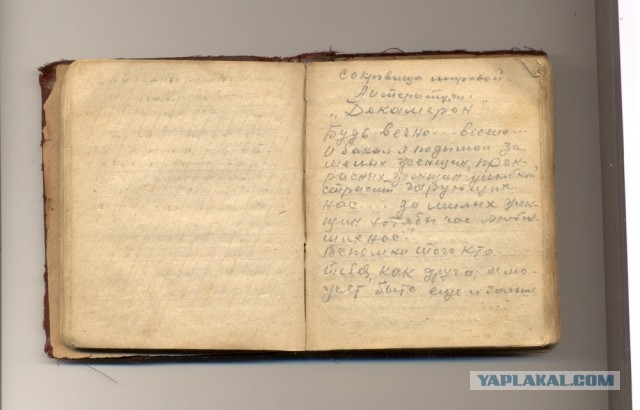 сокровища мировой
Литературы.
„Декамерон"
Будь вечно... весело...
И бокал я подымаю за
милых женщин, прек-
расных женщин,
страсти чарующих
нас... за милых жен-
щин хотябы час любив-
ших нас.
Вспомни того кто
тебя, как друга, а мо-
жет быть еще и больше
YAPLAKAL.COM